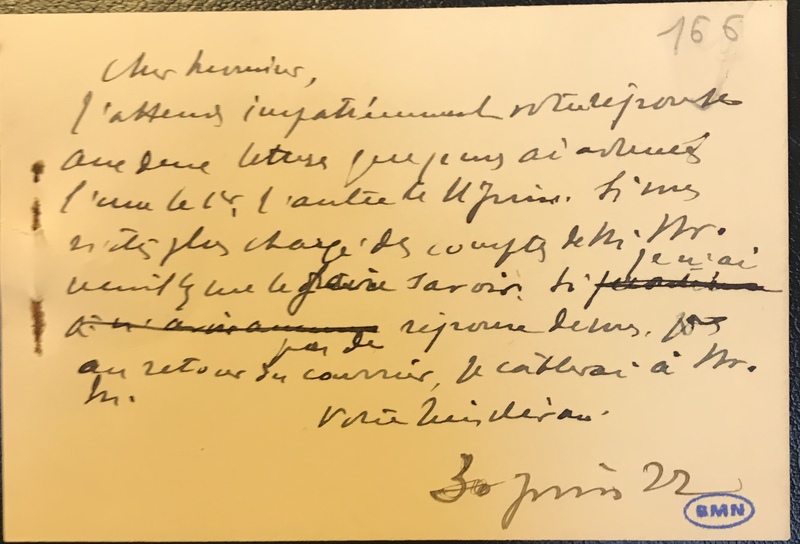 166
Cher Monsieur,
J'attends impatiemment votre réponse
aux deux lettres que je vous ai adressées
l'une le 1er, l'autre le 11 Juin. Si vous
n'êtes plus chargé des comptes de M. Mr.
veuillez me le faire savoir. Si je n'ai
pas de réponse de vous,
au retour du courrier, je câblerai à Mr.
M.
Votre bien dévoué.
30 Juin 22
BMN